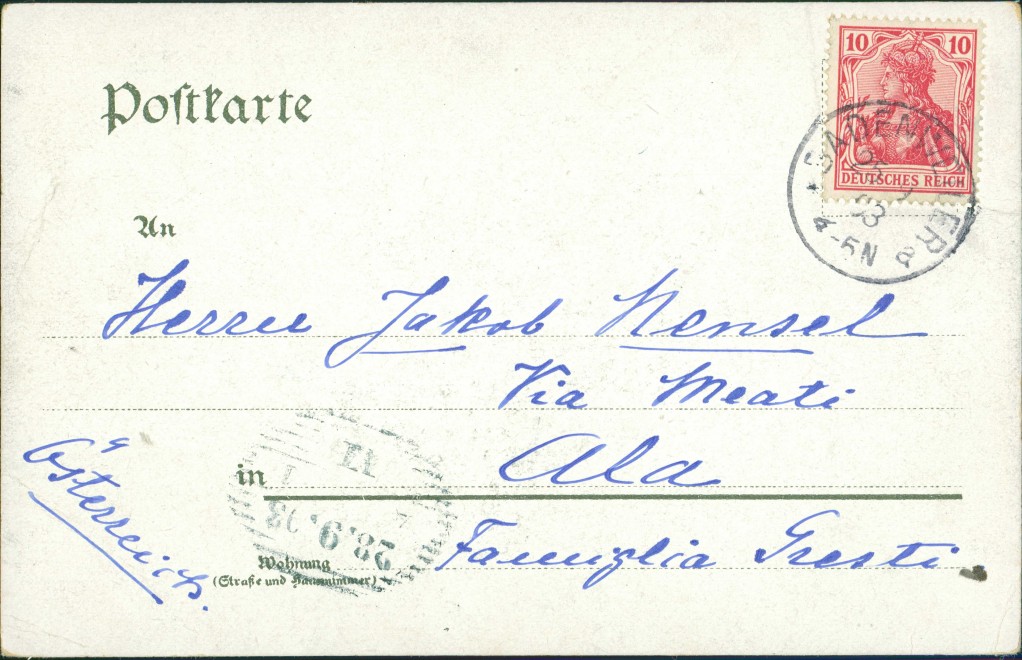 Postkarte
10 10
DEUTSCHES REICH
BADENWEILER
4-5N
An
Herrn Jakob Hensel
Via Meati
Ala
in
Österreich.
28.9.03
Famiglia Gresti
Wohnung
(Straße und Hausnummer)